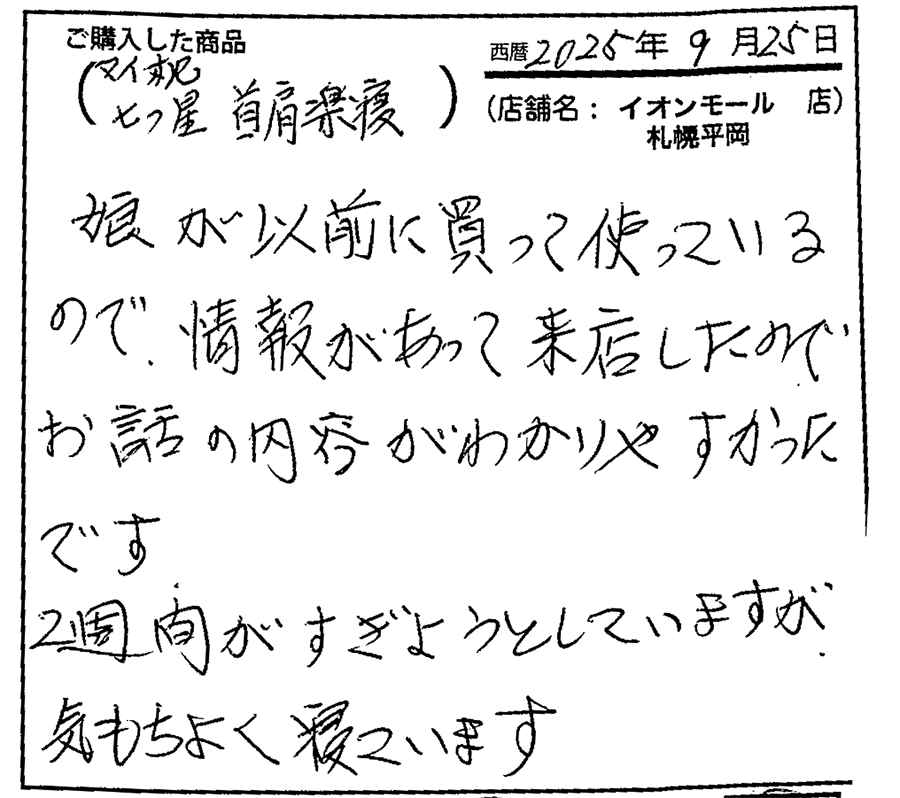 ご購入した商品
西暦2025年9月25日
(マイ枕
七つ星 首肩楽寝)
(店舗名: イオンモール 店)
札幌平岡
娘が以前に買って使っている
ので、情報があって来店したので
お話の内容がわかりやすかった
です
2週間がすぎようとしていますが、
気もちよく寝ています